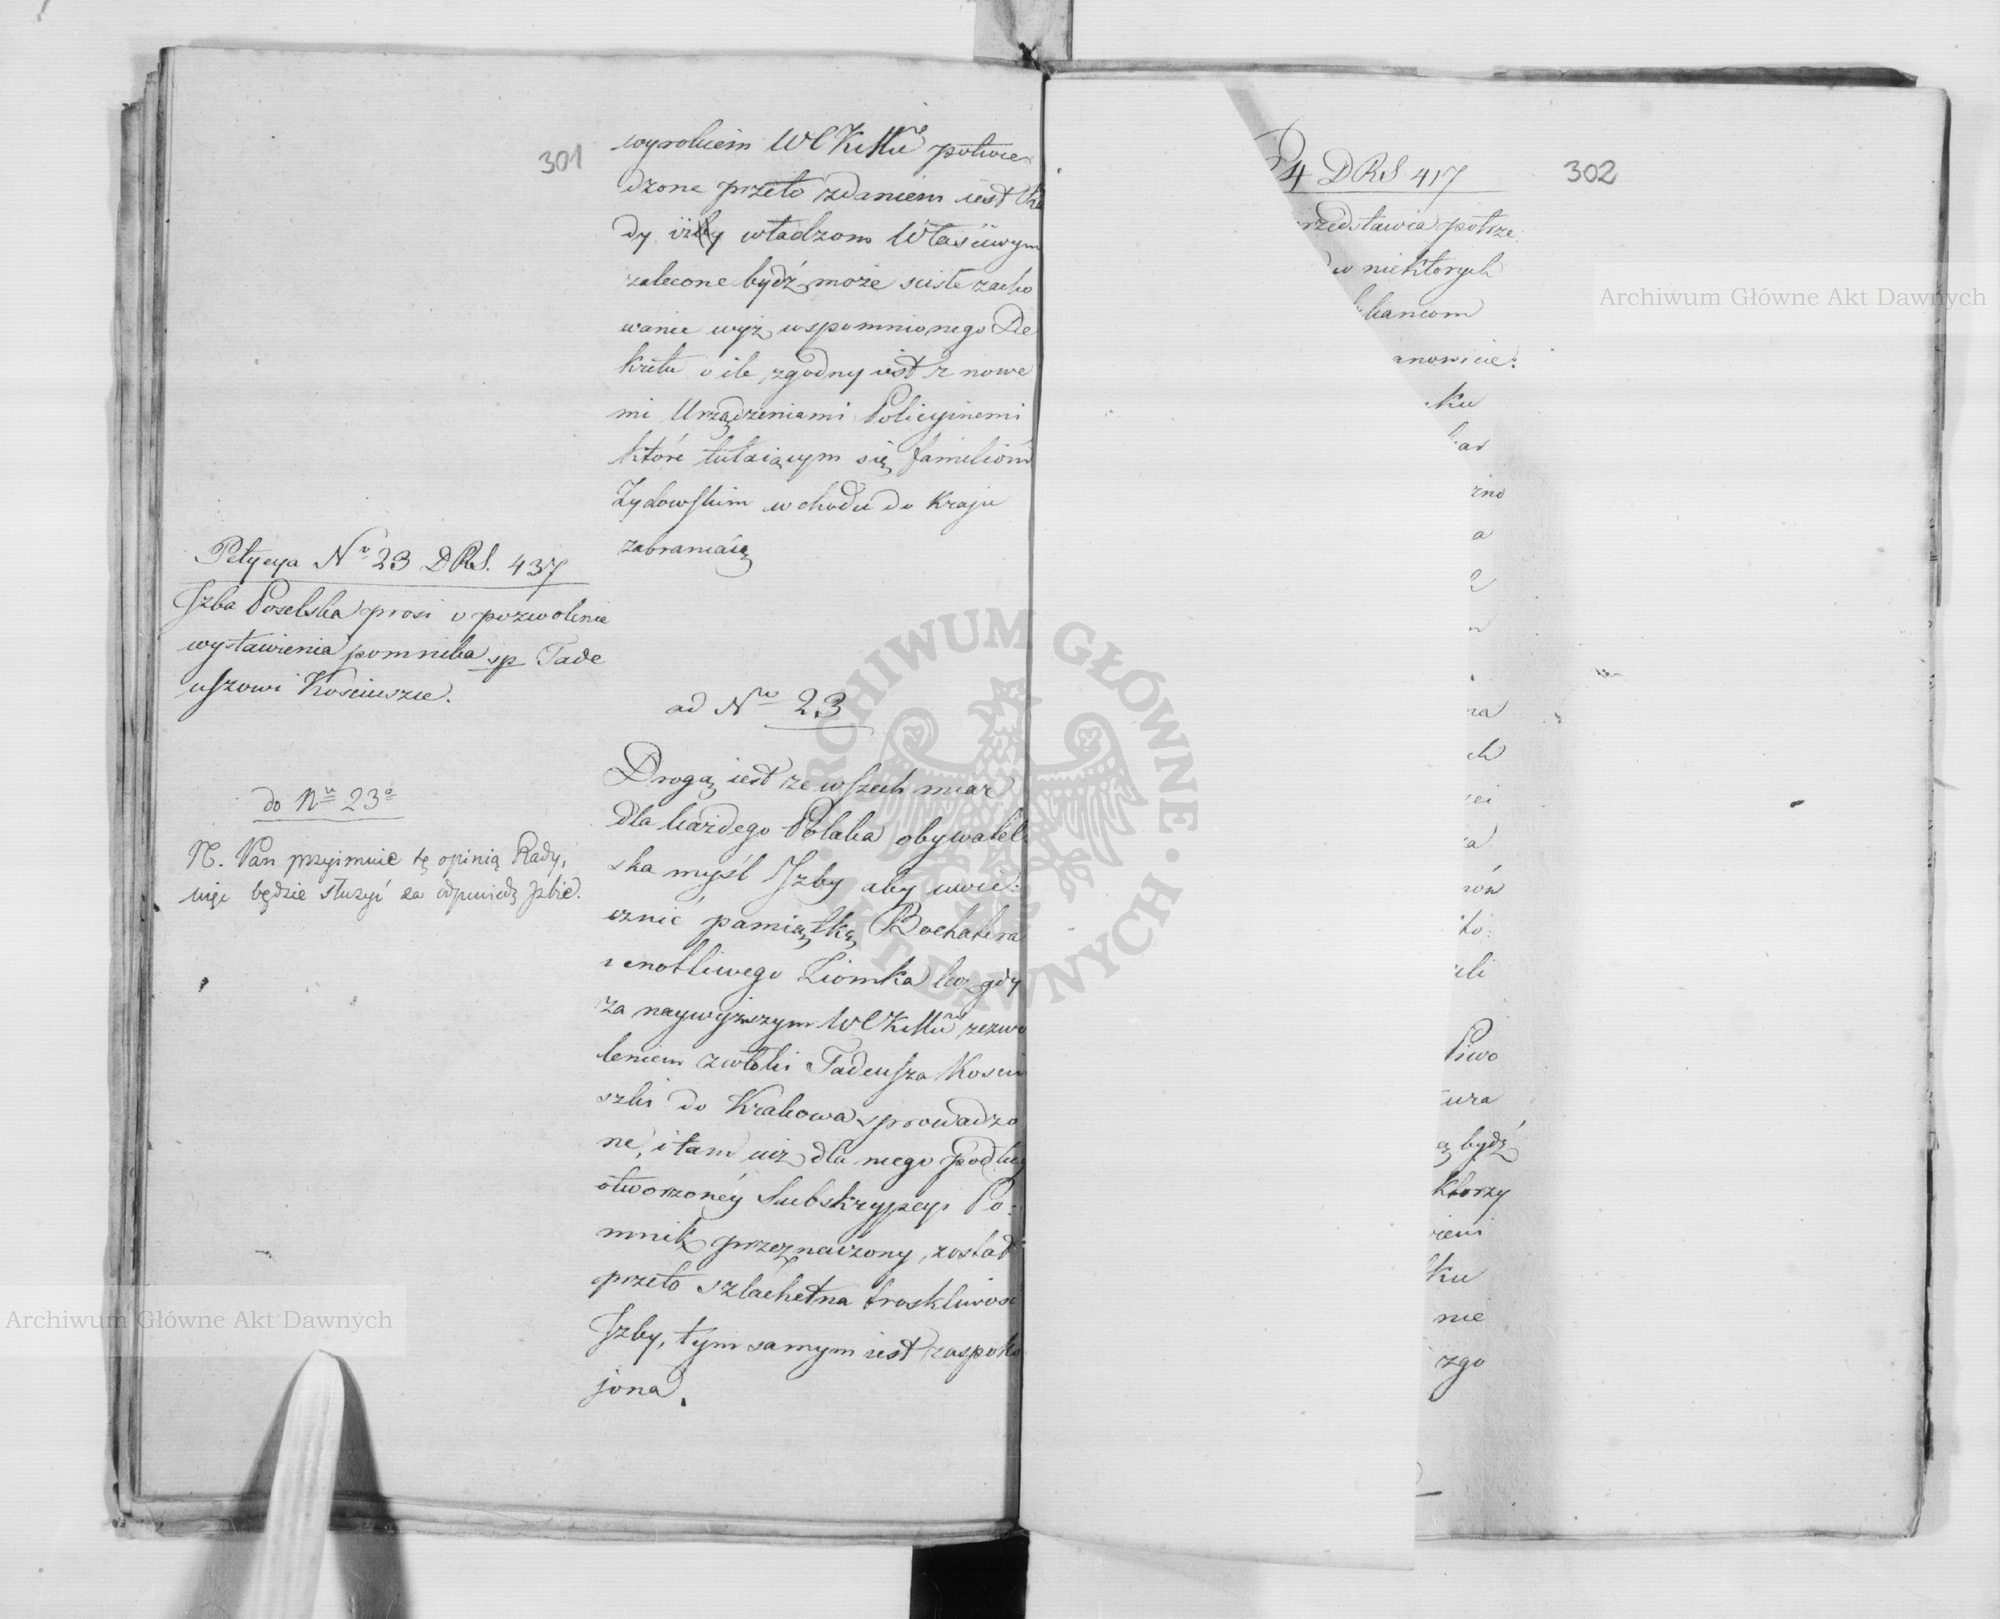 301
wyrokiem WCKMci potwier
dzone przeto zdaniem iest Ra
dy iżby władzom Właściwym
zalecone bydź może sciste zacho
wanie wyż wspomnionego De
kretu o ile zgodny iest z nowe
mi Urządzeniami Policyinemi
które tułaiącym się familiom
Zydowskim wchodu do Kraju
zabraniaią
Petycya No 23 DRS. 437
Izba Poselska prosi o pozwolenie
wystawienia pomnika sp Tade
uszowi Kosciuszce.
do Nru 23o
N. Pan przyimuie tę opinią Rady,
więc będzie służyć za odpowiedź Izbie.
ad Nro 23
Drogą iest ze wszech miar
dla każdego Polaka obywatel
ska myśl Izby aby uwie:
cznić pamiątkę Bochatera
i cnotliwego Ziomka lecz gdy
za naywyższym WCKMci zezwo
leniem zwłoki Tadeusza Kosciu
szki do Krakowa sprowadzo
ne, i tam iuż dla niego podług
otworzonéy Subskrypcyi Po:
mnik przeznaczony został
przeto szlachetna troskliwosc
Izby, tym samym iest zaspoko
jona.
302
4 DRS 417
rzedstawia potrze
w niektorych
banom
anowicie:
ku
zno
a
ra
ch
za
rów
to:
Piwo
ura
ą bydź
ktorzy
ku
nie
zgo
Archiwum Główne Akt Dawnych
Archiwum Główne Akt Dawnych
ARCHIWUM GŁÓWNE · AKT DAWNYCH ·